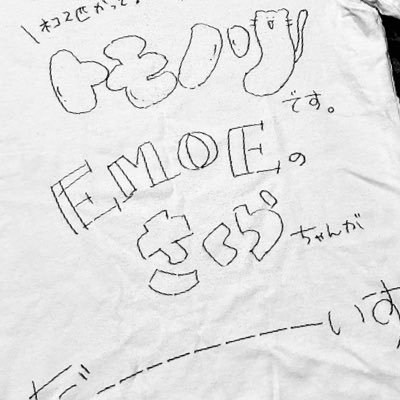 ネコ2匹かって
トモノリです。
EMOEの
さくらちゃんが
だーーーーーーいす